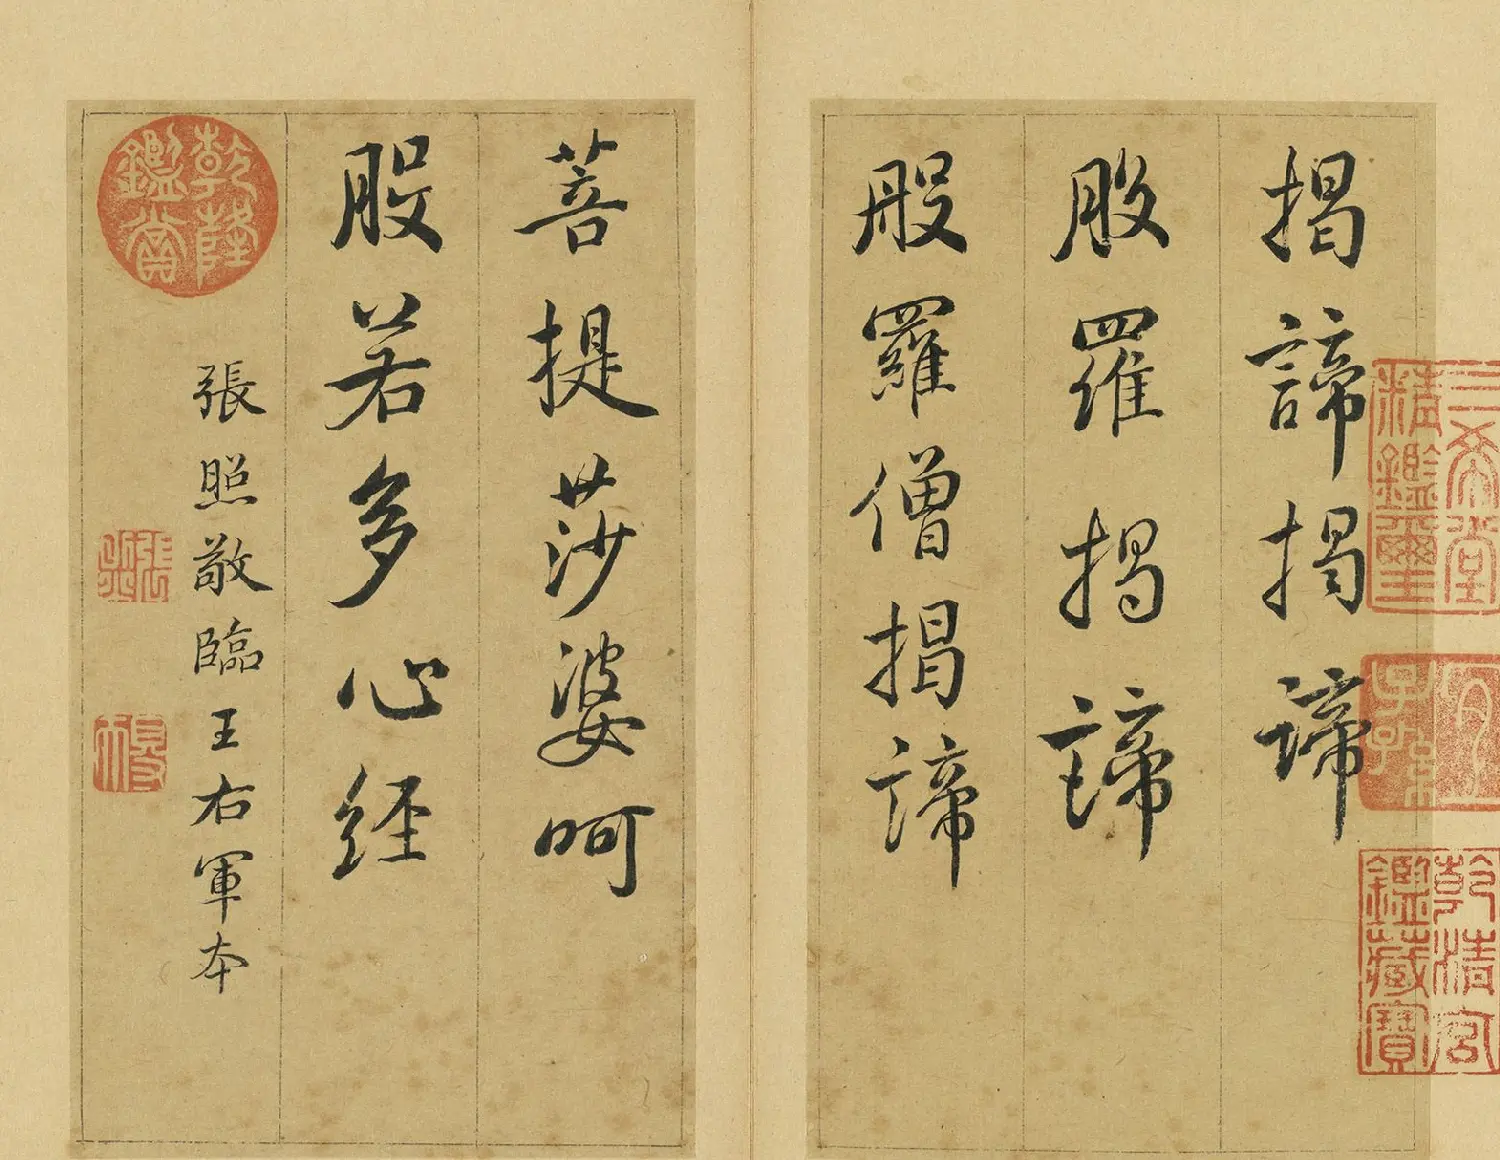 三希堂精鑑璽
宜子孫
乾清宮鑑藏寶
揭諦揭諦
般羅揭諦
般羅僧揭諦
菩提莎婆呵
般若多心経
張照敬臨王右軍本
乾隆鑑賞
張照